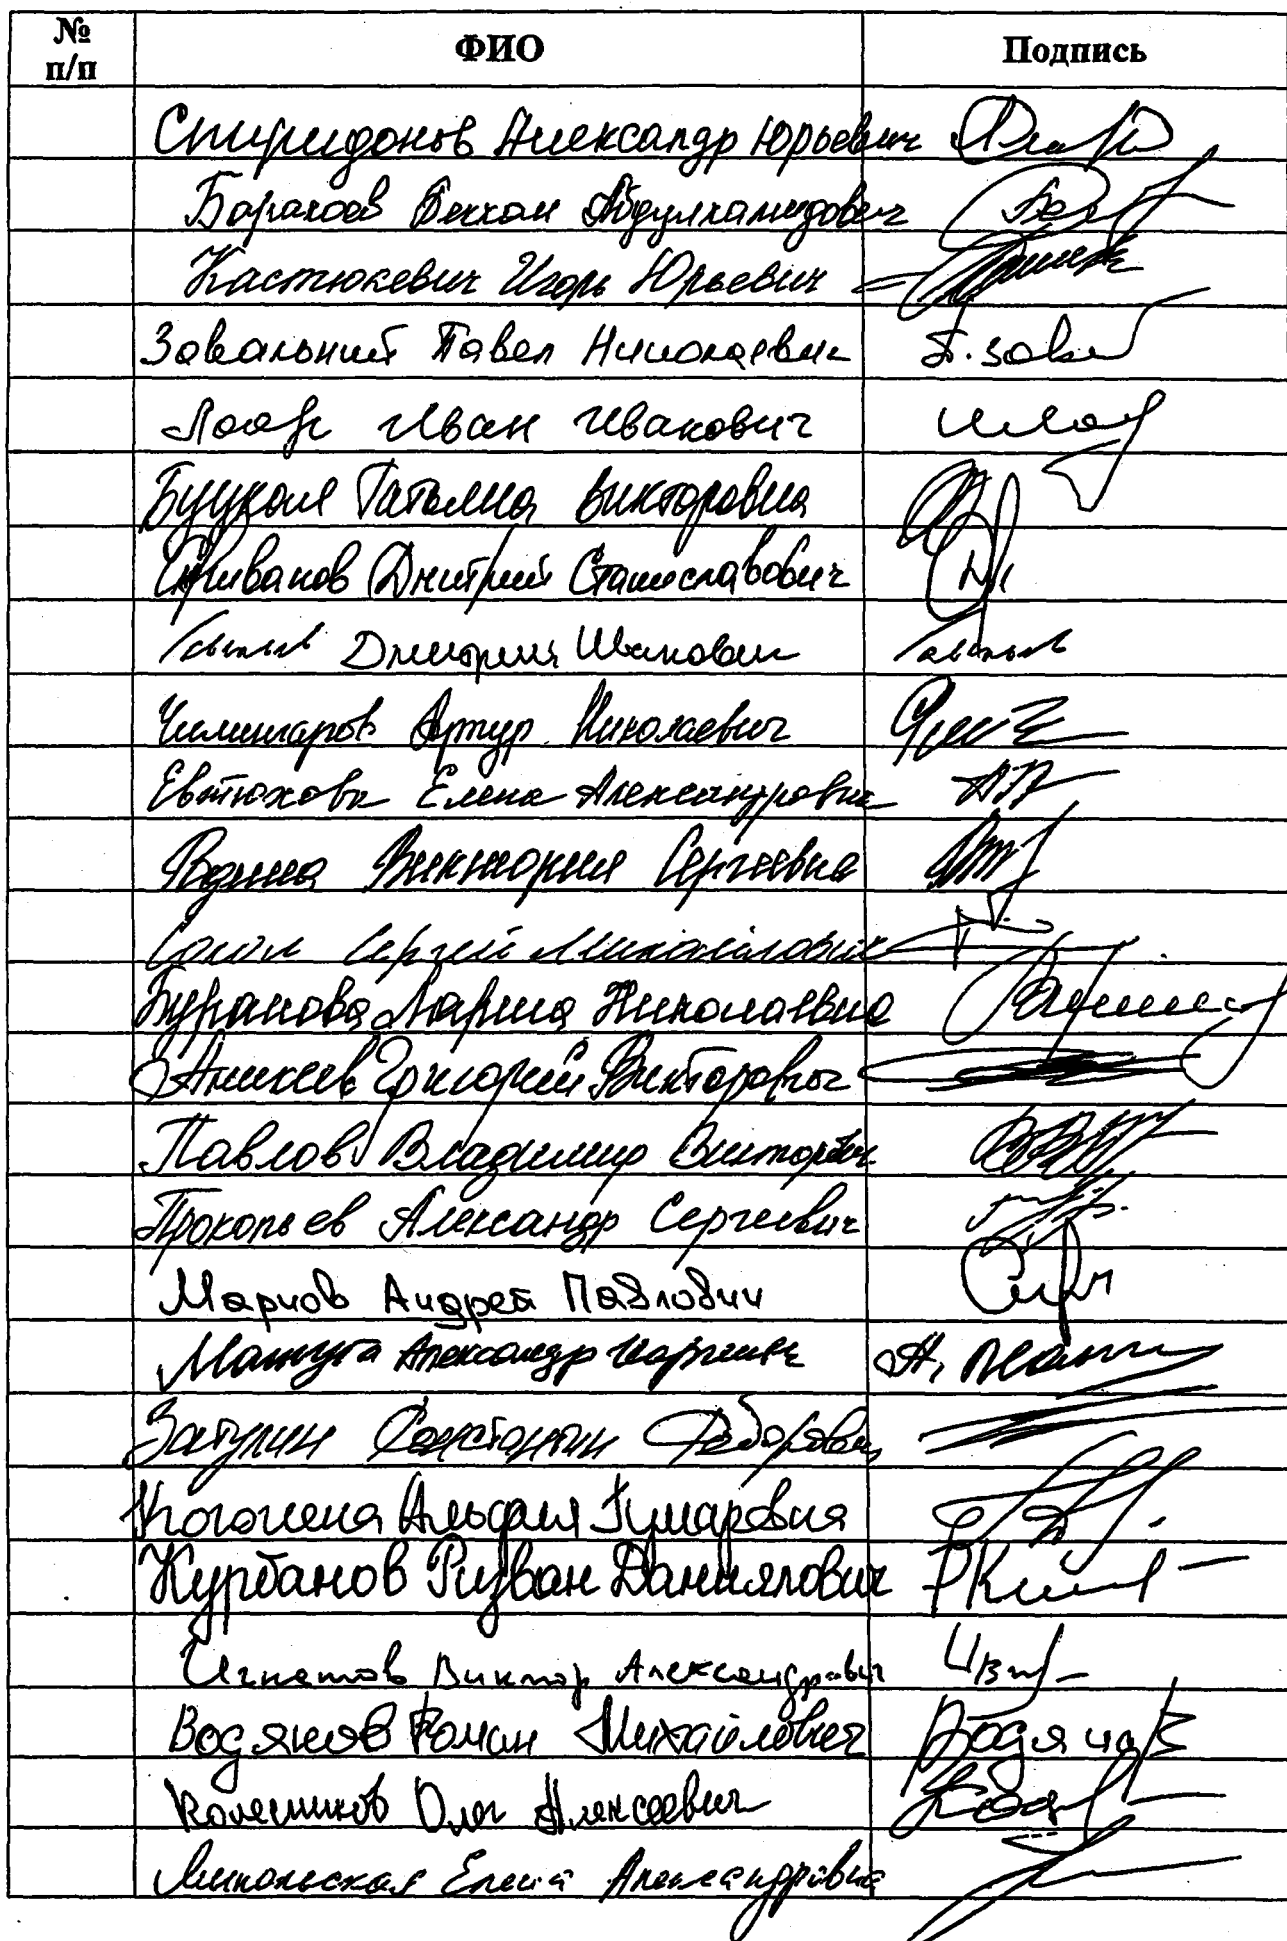 № п/п ФИО Подпись
Спиридонов Александр Юрьевич
Барахоев Бекхан Абдулхамидович
Кастюкевич Игорь Юрьевич
Завальный Павел Николаевич П. Завал
Лоор Иван Иванович
Буцкая Татьяна Викторовна
Скриванов Дмитрий Станиславович
Дмитрий Иванович
Чилингаров Артур Николаевич
Евтюхова Елена Александровна
Родина Виктория Сергеевна
Сокол Сергей Михайлович
Буранова Лариса Николаевна
Аникеев Григорий Викторович
Павлов Владимир Викторович
Прокопьев Александр Сергеевич
Марков Андрей Павлович
Мажуга Александр Георгиевич
Затулин Константин Федорович
Когогина Альфия Гумаровна
Курбанов Ризван Даниялович
Игнатов Виктор Александрович
Водянов Роман Михайлович
Колесников Олег Алексеевич
Ямпольская Елена Александровна